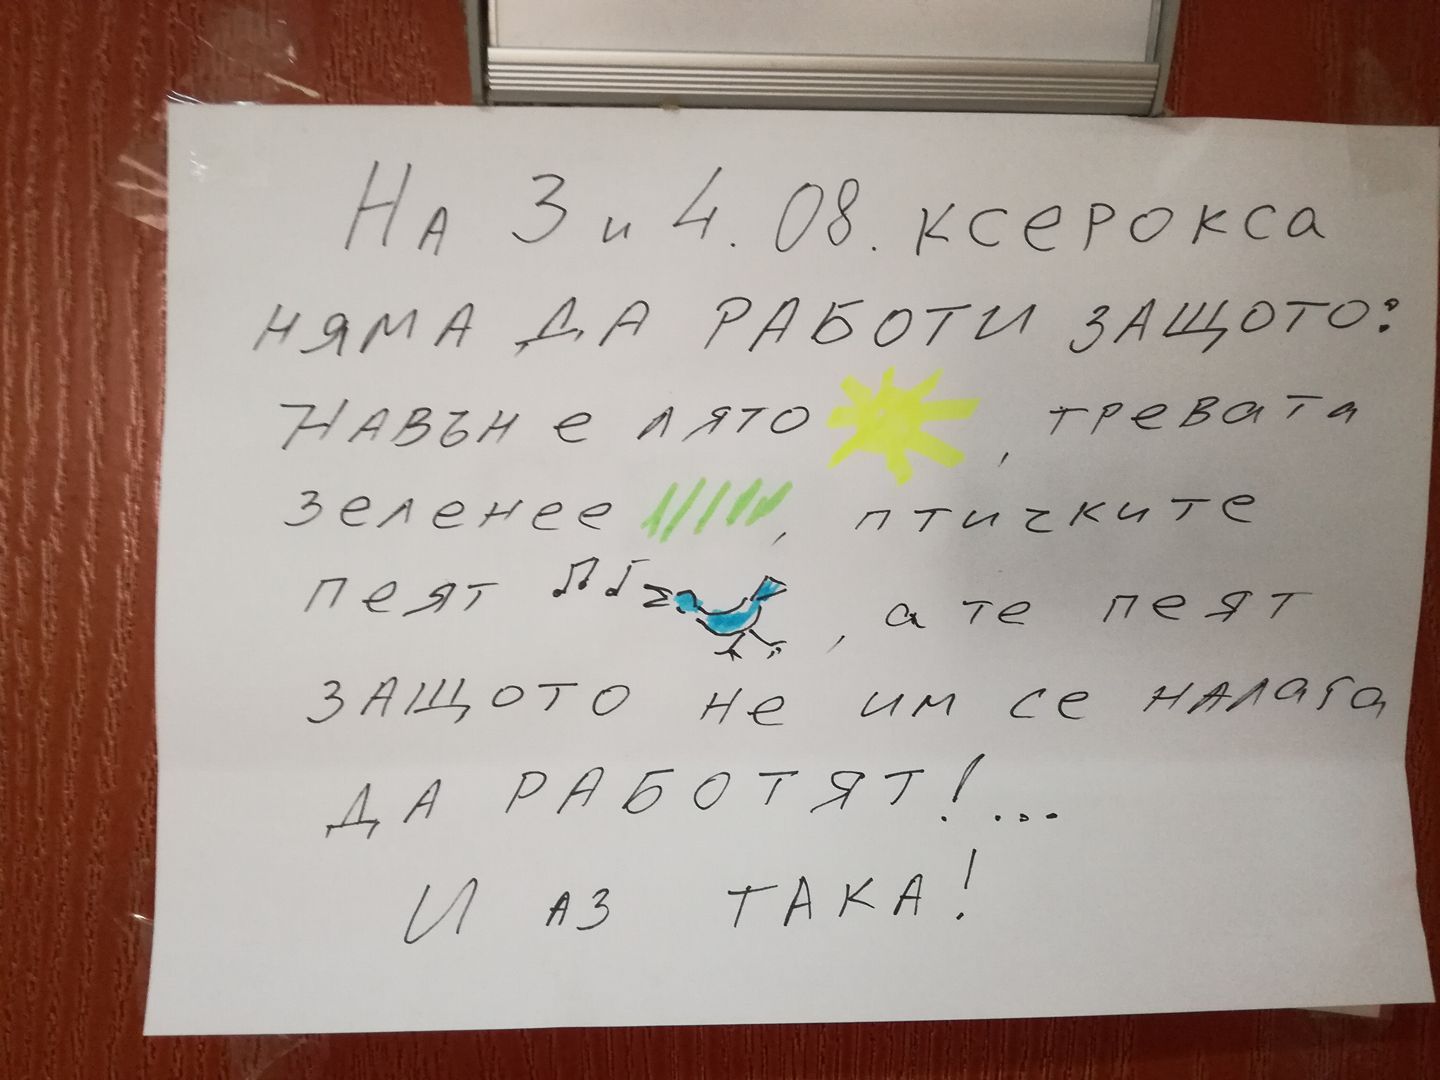 На 3 и 4.08. ксерокса
няма да работи защото:
Навън е лято , тревата
зеленее , птичките
пеят , а те пеят
защото не им се налага
да работят!...
И аз така!